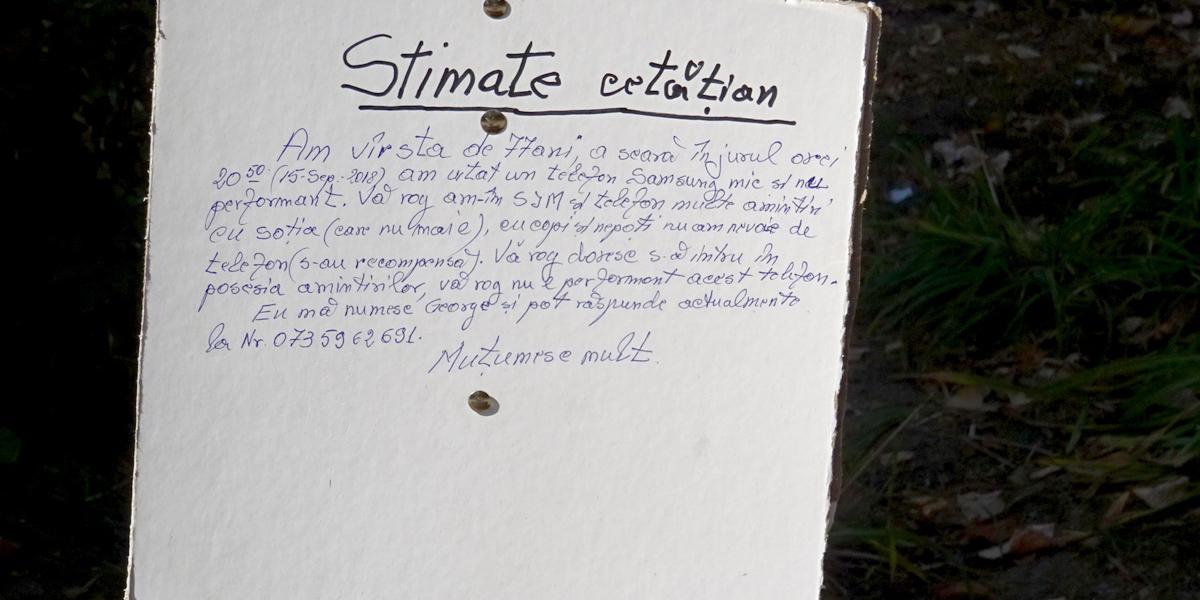 Stimate cetățian
Am vîrsta de 77ani, a seară în jurul orei
20⁵⁰ (15-Sep.-2018) am uitat un telefon Samsung mic si nu
performant. Vă rog am-în SIM și telefon multe amintiri
cu soția (care nu maie), cu copi și nepoți nu am nevoie de
telefon (s-au recompensă). Vă rog doresc s-ă intru în
posesia amintirilor, vă rog nu e performant acest telefon.
Eu mă numesc George și pot răspunde actualmente
la Nr. 0735962691.
Muțumesc mult.